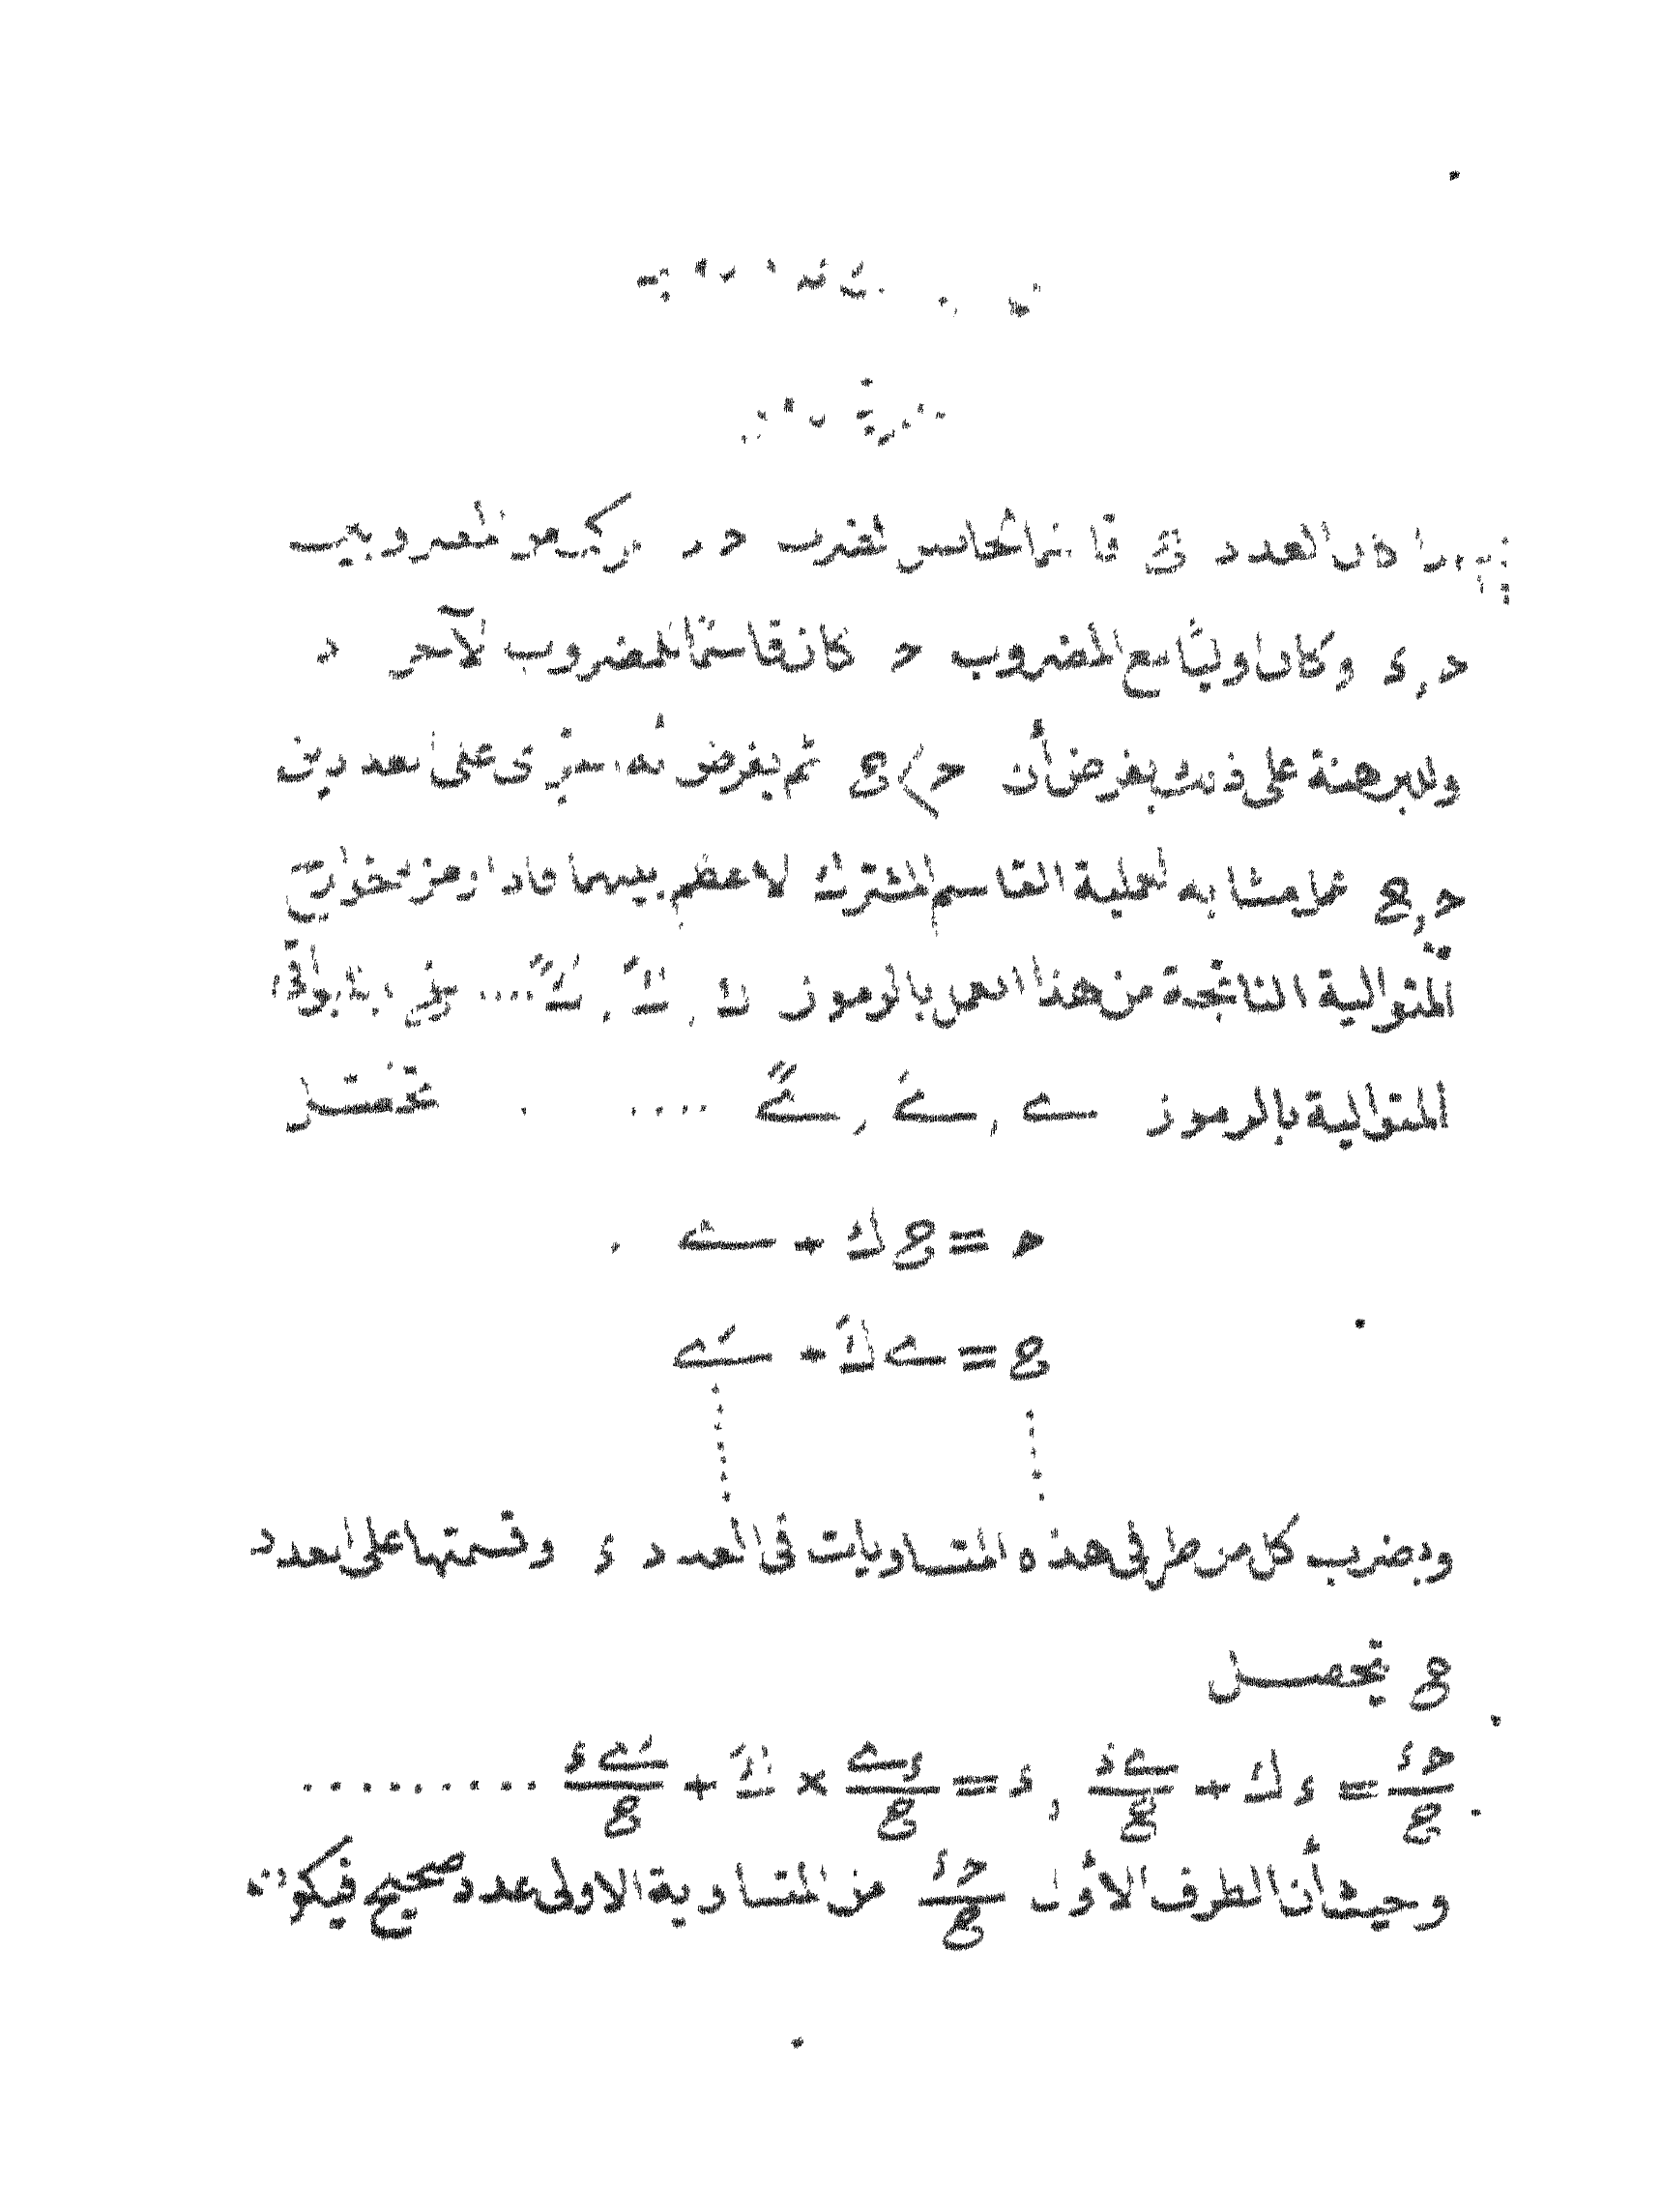 العدد ق قاسما لحاصل الضرب حـ د مركب من المضروبين
حـ , ء وكان اوليا مع المضروب حـ كان قاسما للمضروب الآخر د
وللبرهنة على ذلك يفرض أن حـ > ع ثم يفرض أنه أجرى على العددين
حـ , ع عملا مشابه لعملية القاسم المشترك الاعظم بينهما فاذا رمز لخوارج
المتوالية الناتجة من هذا العمل بالرموز ك , كَ , كً ....
المتوالية بالرموز ے , ےَ , ےً .... تحصل
حـ = ع ك + ے
ع = ے كَ + ےَ
وبضرب كل من طرفى هذه المتساويات فى العدد ء وقسمتها على العدد
ع يحصل
حـء/ع = ء ك + ےء/ع , ء = ءے/ع × كَ + ےَء/ع .........
وحيث أن الطرف الأول حـء/ع من المتساوية الاولى عدد صحيح فيكون